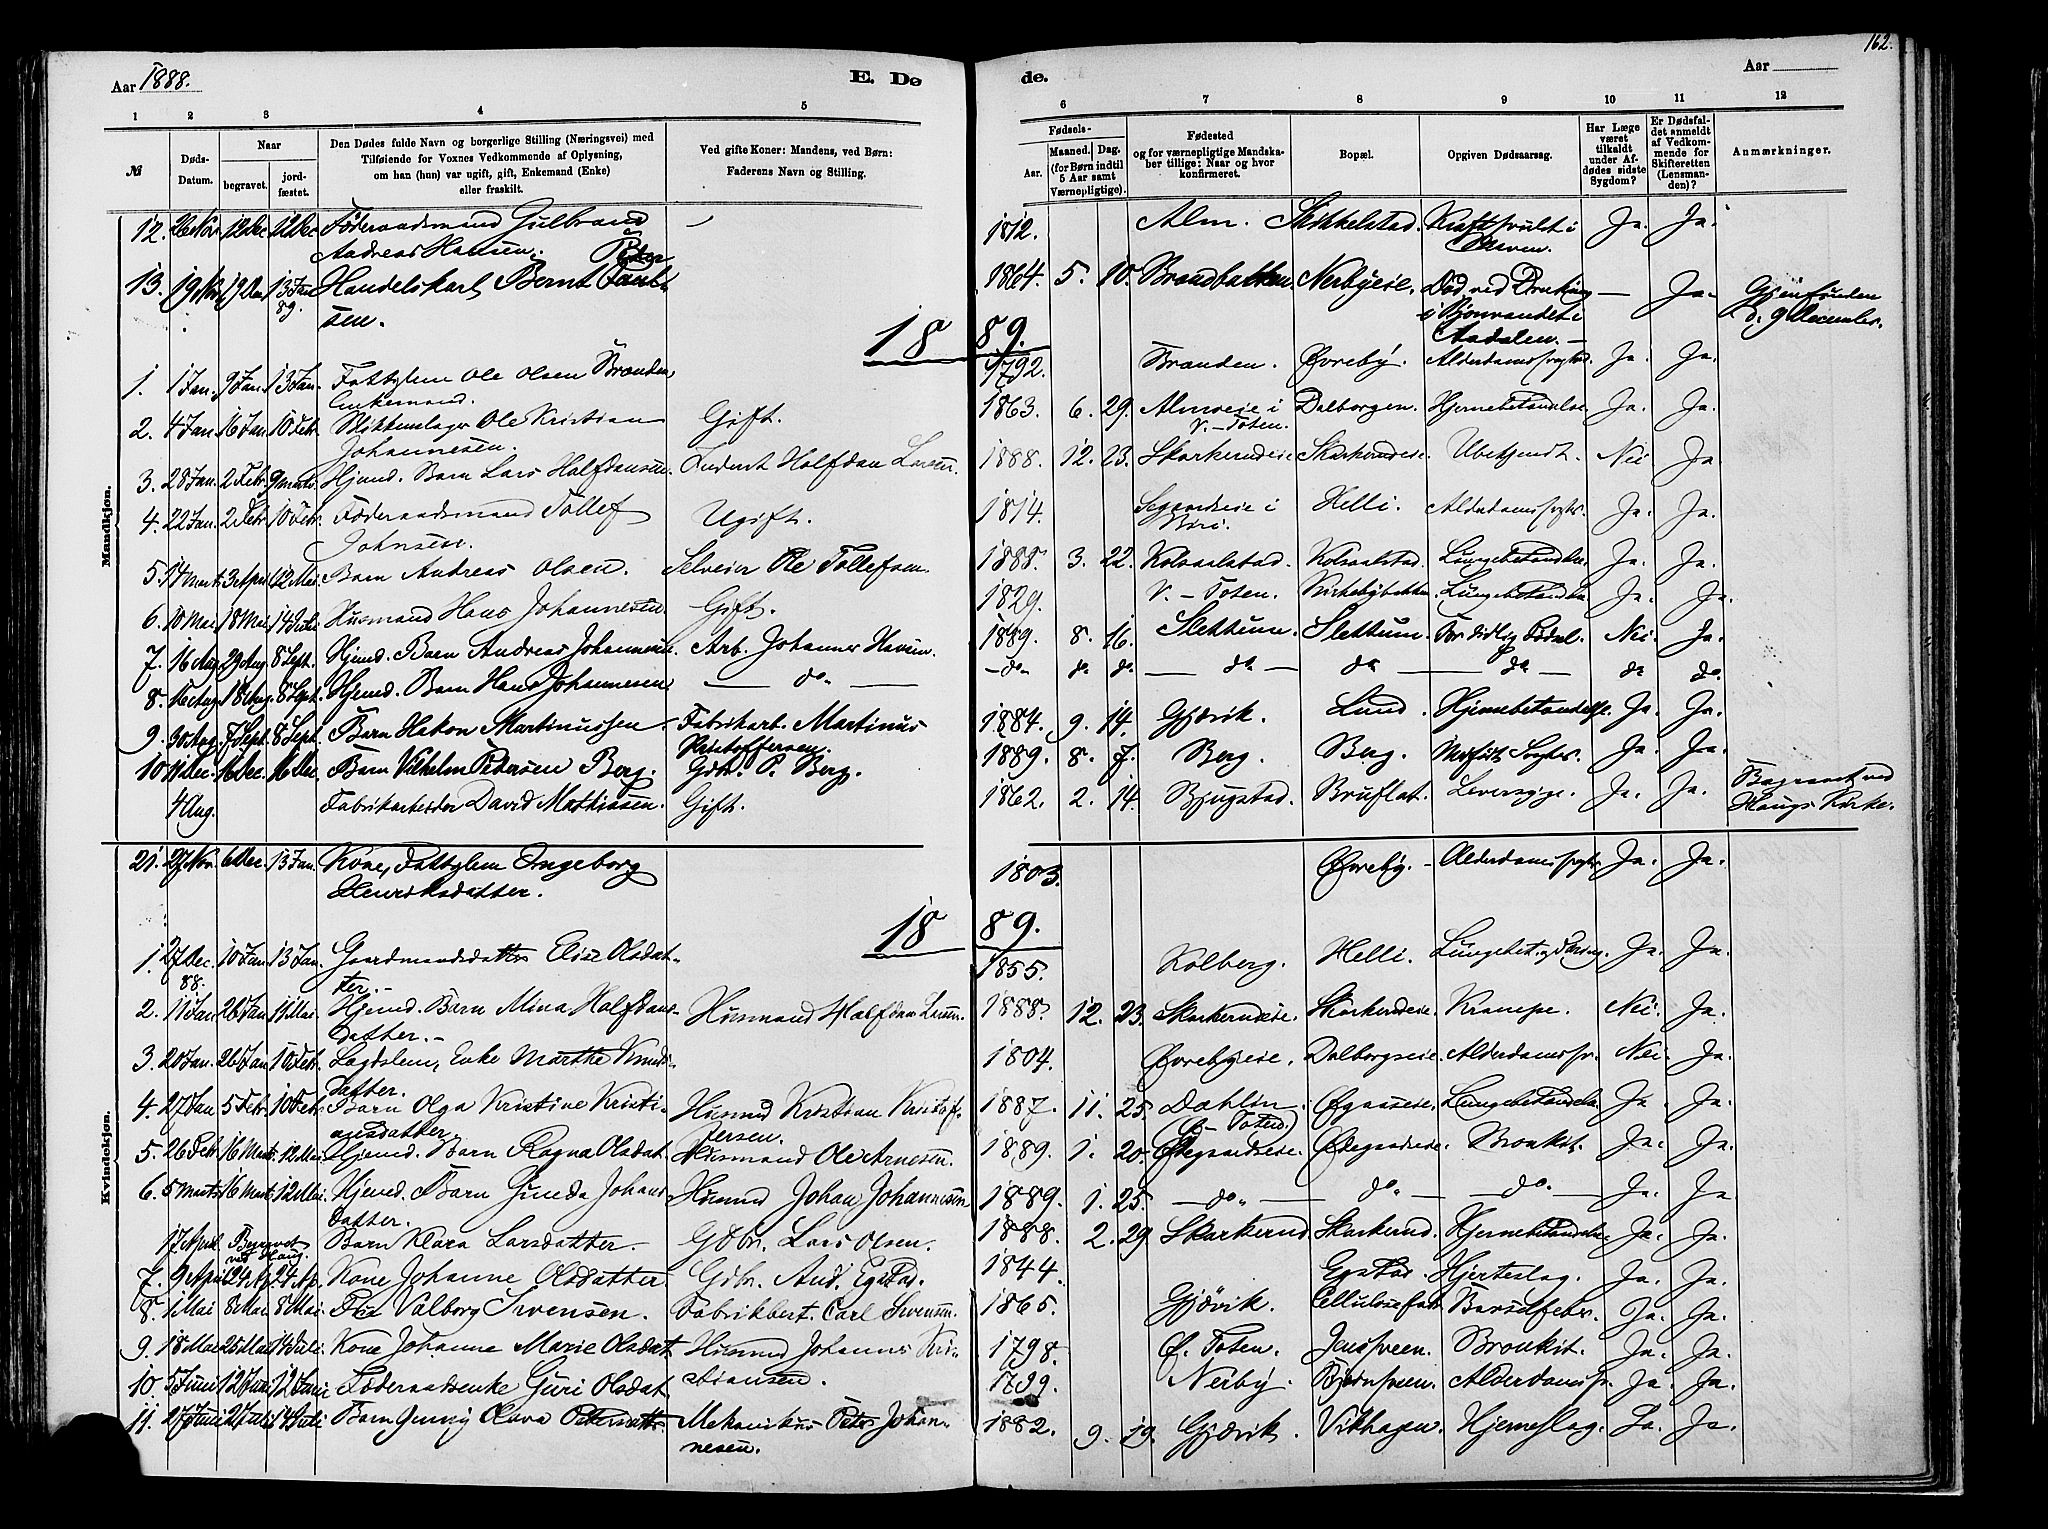 162.
Aar 1888.
E. Dø
de.
Aar
1 2 3 4 5 6 7 8 9 10 11 12
№
Døds-
Datum.
Naar
begravet.
jord-
fæstet.
Den Dødes fulde Navn og borgerlige Stilling (Næringsvei) med
Tilføiende for Voxnes Vedkommende af Oplysning,
om han (hun) var ugift, gift, Enkemand (Enke)
eller fraskilt.
Ved gifte Koner: Mandens, ved Børn:
Faderens Navn og Stilling.
Fødsels-
Aar.
Maaned. Dag.
(for Børn indtil
5 Aar samt
Værnepligtige).
Fødested
og for værnepligtige Mandska-
ber tillige: Naar og hvor
konfirmeret.
Bopæl.
Opgiven Dødsaarsag.
Har Læge
været
tilkaldt
under Af-
dødes sidste
Sygdom?
Er Dødsfal-
det anmeldt
af Vedkom-
mende for
Skifteretten
(Lensman-
den)?
Anmærkninger.
Mandkjøn.
12. 26 Nov 12 Dec 12 Dec Föderaadsmand Gulbrand 1812. Alm. Skikkelstad. Ja. Ja.
Andreas Hansen.
13. 19 Nov 19 Dec 13 Jan Handelskarl Bernt 1864. 5. 10. Nerbyeie. Død ved Drukning — Ja. Gjenfunden
89. sen. i Aadalen. d. 9 December.
1889.
1. 1 Jan. 9 Jan. 13 Jan. Fattiglem Ole Olsen Branden 1792. Branden. Øvreby. Ja. Ja.
Enkemand.
2. 4 Jan. 16 Jan. 10 Febr. Ole Kristian Gift. 1863. 6. 29. i Dalborgen. Hjernebetændelse Ja. Ja.
Johannesen. V.-Toten.
3. 28 Jan. 2 Febr. 9 Marts Hjemd. Barn Lars Halfdansen. Halfdan Larsen. 1888. 12. 23. Skarkerudeie Skarkerudeie. Ubekjendt. Nei Ja
4. 22 Jan. 2 Febr. 10 Febr. Föderaadsmand Tollef Ugift. 1814. i Helli. Ja. Ja.
Johnsen. Biri.
5. 14 Marts 3 April 12 Mai Barn Andreas Olsen. Selveier Ole Tollefsen. 1888. 3. 22. Kolvaalstad. Lungebetændelse Ja. Ja.
6. 10 Mai. 18 Mai. 14 Juli Husmand Hans Johannesen. Gift. 1829. V.-Toten. Lungebetændelse Ja. Ja.
7. 16 Aug. 29 Aug. 8 Sept. Hjemd. Barn Andreas Johannesen. Arb. Johannes 1889. 8. 16. Slettum. Slettum. For tidlig Födsel. Nei Ja.
8. 16 Aug. 18 Aug. 8 Sept. Hjemd. Barn Hans Johannesen — do — — do — do do — do — do — do — do do.
9. 30 Aug. 7 Sept. 8 Sept. Barn Hakon Martinussen. Fabrikarb. Martinus 1884. 9. 14. Gjövik. Lund. Hjernebetændelse. Ja. Ja.
Kristoffersen.
10. 11 Dec. 16 Dec. 16 Dec. Barn Vilhelm Pedersen Berg. Gdbr. P. Berg. 1889. 8. 7. Berg. Berg. Ja. Ja.
4 Aug. Fabrikarbeider David Mathisen. Gift. 1862. 2. 14. Bjugstad. Bruflat. Leversyge. Ja. Ja. Begravet ved
Haugs Kirke.
Kvindekjøn.
21. 27 Nov. 6 Dec. 13 Jan. Kone, Fattiglem Ingeborg 1803. Øvreby. Ja. Ja.
Henriksdatter.
1889.
1. 27 Dec. 10 Jan. 13 Jan. Gaardmandsdatter Elise Olsdat- 1855. Kolberg. Helli. Ja. Ja.
88. ter.
2. 11 Jan 26 Jan 11 Mai Hjemd. Barn Mina Halfdans- Husmand Halfdan Larsen. 1888. 12. 23. Skarkerudeie. Skarkerudeie. Krampe. Nei. Ja.
datter.
3. 20 Jan. 26 Jan. 10 Febr. Lagdslem, Enke Marthe Knuds- 1804. Øvrebyeie. Dalborgseie. Nei. Ja.
datter.
4. 27 Jan 5 Febr. 10 Febr. Barn Olga Kristine Kristi- Husmd Kristian Kristof- 1887. 11. 25. Dahlen Lungebetændelse Ja. Ja.
ansdatter. fersen. (Ø-Toten)
5. 26 Febr. 16 Marts 12 Mai Hjemd. Barn Ragna Olsdat. Husmand Ole Arnesen. 1889. 1. 20. Ødegaardseie. Ødegaardseie. Bronkit. Ja. Ja.
6. 5 Marts 16 Marts 12 Mai Hjemd. Barn Gunda Johans- Husmd Johan Johannesen 1889. 1. 25. — do — — do — — do — Ja. Ja
datter.
17 April Begravet Barn Klara Larsdatter. Gdbr. Lars Olsen. 1888. 2. 29. Skarkerud. Skarkerud. Hjernebetændelse. Ja. Ja.
ved Haug.
7. 9 April 24 Ap. 24 Ap. Kone Johanne Olsdatter Gdbr. And. Egstad. 1844. Egstad. Hjerteslag. Ja. Ja.
8. 1 Mai 8 Mai 8 Mai Valborg Svensen. Carl Svensen. 1865. Gjövik. Cellulosefab. Barselfeber. Ja. Ja.
9. 18 Mai 25 Mai 14 Juli Kone Johanne Marie Olsdat. Husmd Johannes Kri- 1798. Ø. Toten. Bronkit. Ja. Ja.
stiansen.
10. 5 Juni 12 Juni 12 Juni Föderaadsenke Guri Olsdat. Nerby. Ja. Ja.
11. 27 Juni 2 Juli 14 Juli Barn Mekanikus Peter Johan- 1882. 9. 19. Gjövik. Vikhagen. Hjerneslag. Ja. Ja.
nesen.